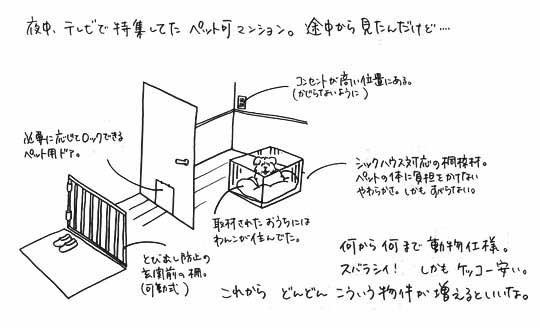 夜中、テレビで特集してた ペット可マンション。途中から見たんだけど‥‥
コンセントが高い位置にある。
(かじらないように)
必要に応じてロックできる
ペット用ドア。
シックハウス対応の桐棧材。
ペットの体に負担をかけない
やわらかさ。しかもすべらない。
取材されたおうちには
わんこが住んでた。
とび出し防止の
玄関前の柵。
(可動式)
何から何まで動物仕様。
スバラシイ! しかもケッコー安い。
これから どんどん こういう物件が 増えるといいな。